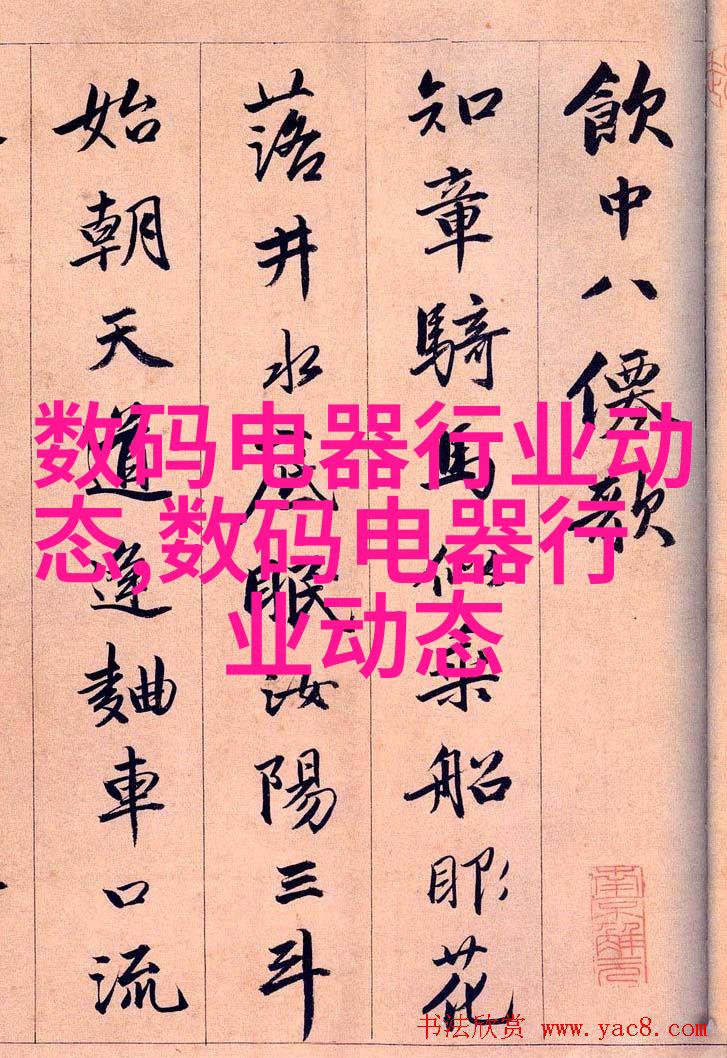 飲中八僊歌
知章騎馬似乘船眼花
落井水底眠汝陽三斗
始朝天道逢麯車口流
数码电器行业动
态,数码电器行
业动态
南京解元
书法欣赏 www.yac8.com